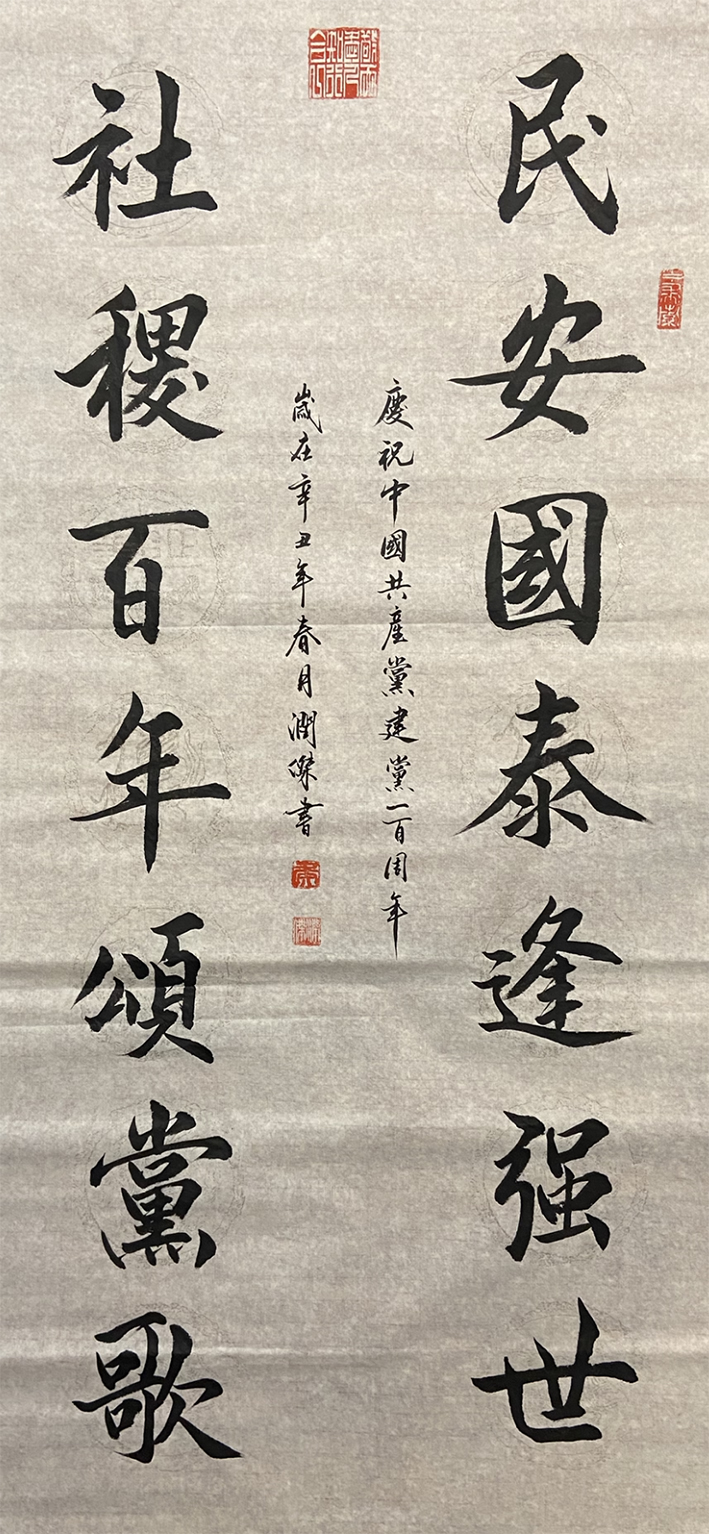 民安國泰逢强世
慶祝中國共産黨建黨一百周年
歲在辛丑年春月潤傑書
社稷百年頌黨歌